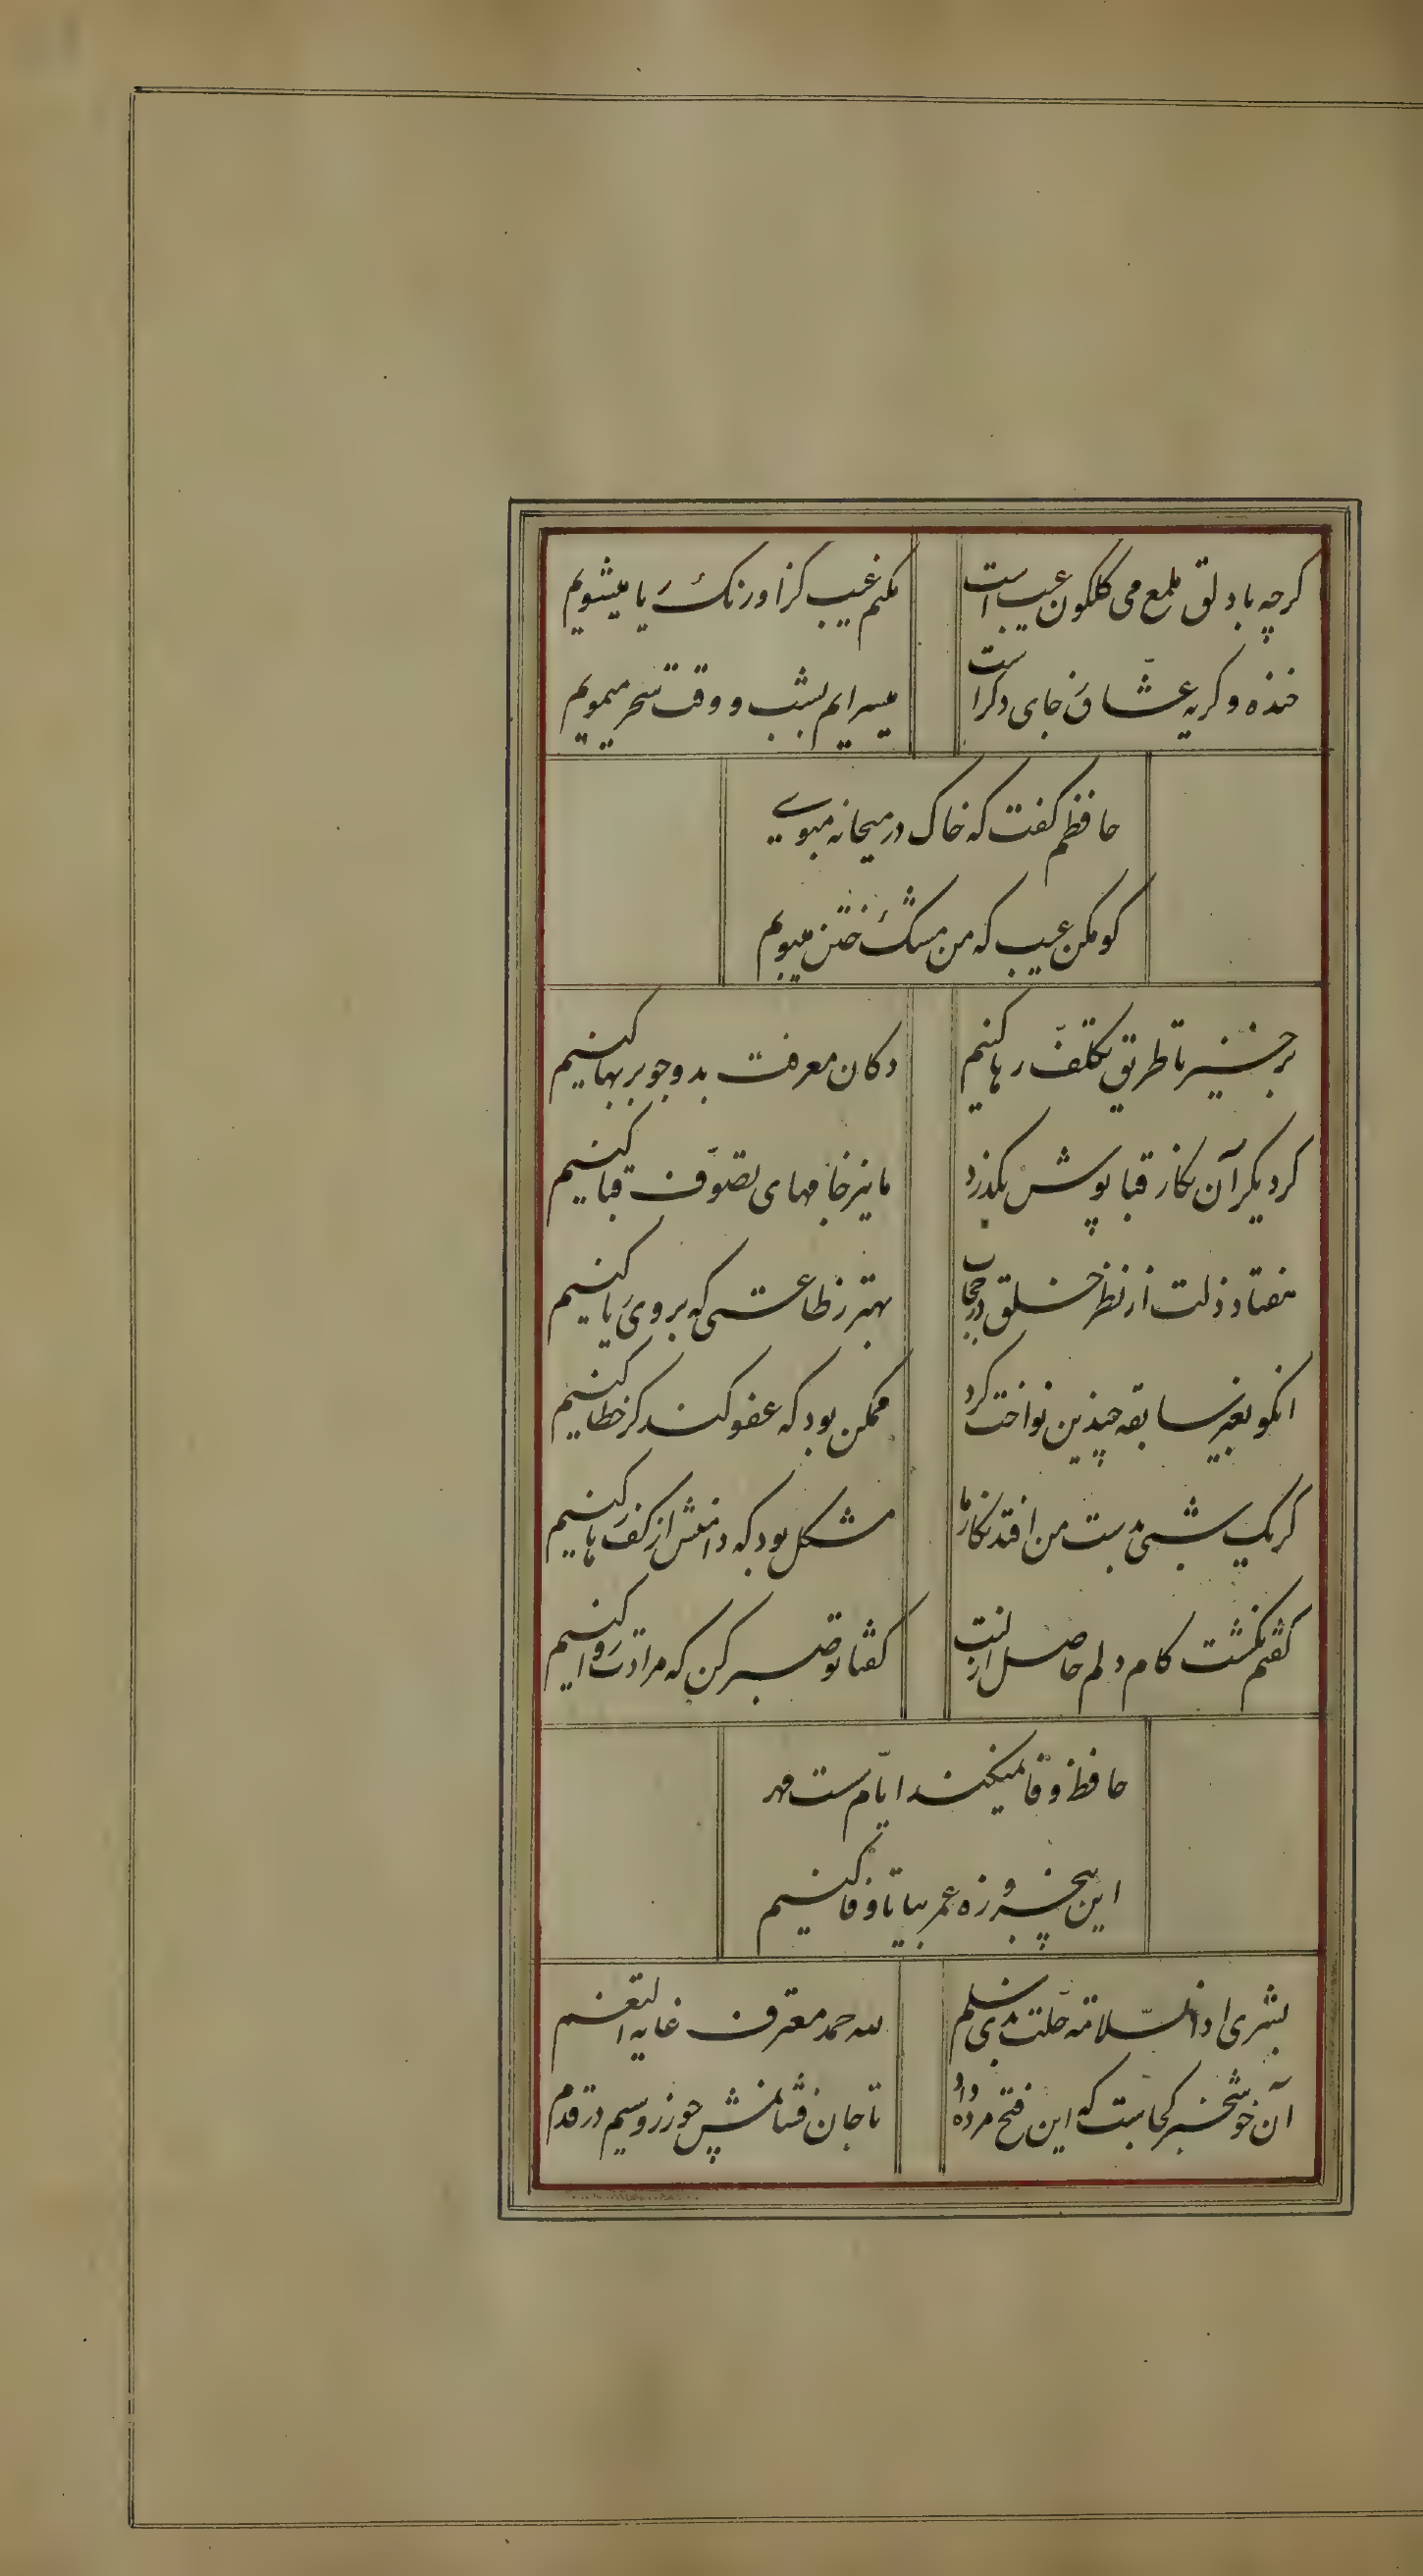 کرچه با دلق ملمع می کلکون عیب است
مکنم عیب کزا و رنک ریا میشویم
خنده و کریه عشّاق ز جای دکر است
میسرایم بشب و وقت سحر میمویم
حافظم کفت که خاک در میخانه مبوی
کو مکن عیب که من مشک ختن میبویم
برخیز تا طریق تکلّف رها کنیم
دکان معرفت بدو جو بر بها کنیم
کر دیکر آن نکار قبا پوش بکذرد
ما نیز جامهای تصوّف قبا کنیم
هفتاد ذلت از نظر خلق در حجاب
بهتر ز طاعتی که بروی ریا کنیم
انکو بغیر سابقه چندین نواخت کرد
ممکن بود که عفو کند کر خطا کنیم
کر یک شبی بدست من افتد نکار ما
مشکل بود که دامنش از کف رها کنیم
کفتم نکشت کام دلم حاصل از لبت
کفتا تو صبر کن که مرادت روا کنیم
حافظ وفا نمیکند ایّام سست مهر
این پنجروزه عمر بیا تا وفا کنیم
بشری اذ السّلامة حلّت بذی سلم
لله حمد معترف غایه النعم
آن خوشخبر کجاست که این فتح مژده داد
تا جان فشانمش چو زر و سیم در قدم